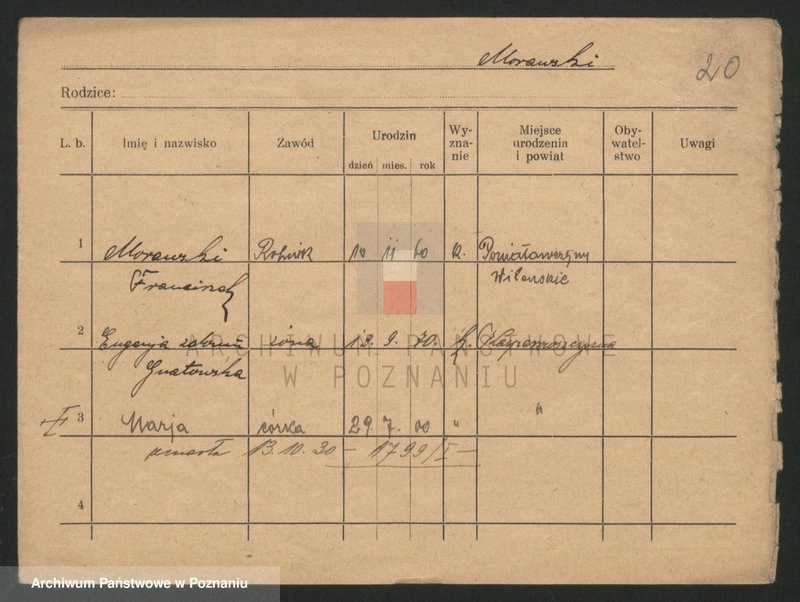 Morawski
20
Rodzice:
L. b. Imię i nazwisko Zawód Urodzin Wy-zna-nie Miejsce urodzenia i powiat Oby-watel-stwo Uwagi
dzień mies. rok
1 Morawski Rolnik 10 11 60
Franciszek Wilenskie
2 Eugenja żona 13. 9. 70.
Gnatowska
3 Marja córka 29. 7. 00 "
"
zmarła 13.10.30 – 1799/I –
4
ARCHIWUM PAŃSTWOWE
W POZNANIU
Archiwum Państwowe w Poznaniu